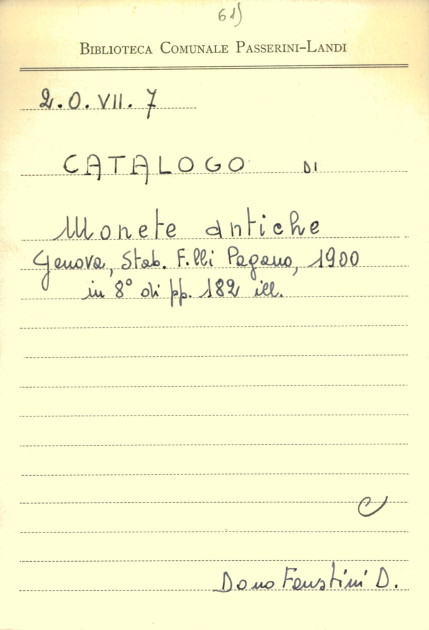 61)
BIBLIOTECA COMUNALE PASSERINI-LANDI
2.O.VII.7
CATALOGO DI
Monete antiche
Genova, Stab. F.lli Pagano, 1900
in 8° di pp. 182 ill.
C
Dono Faustini D.